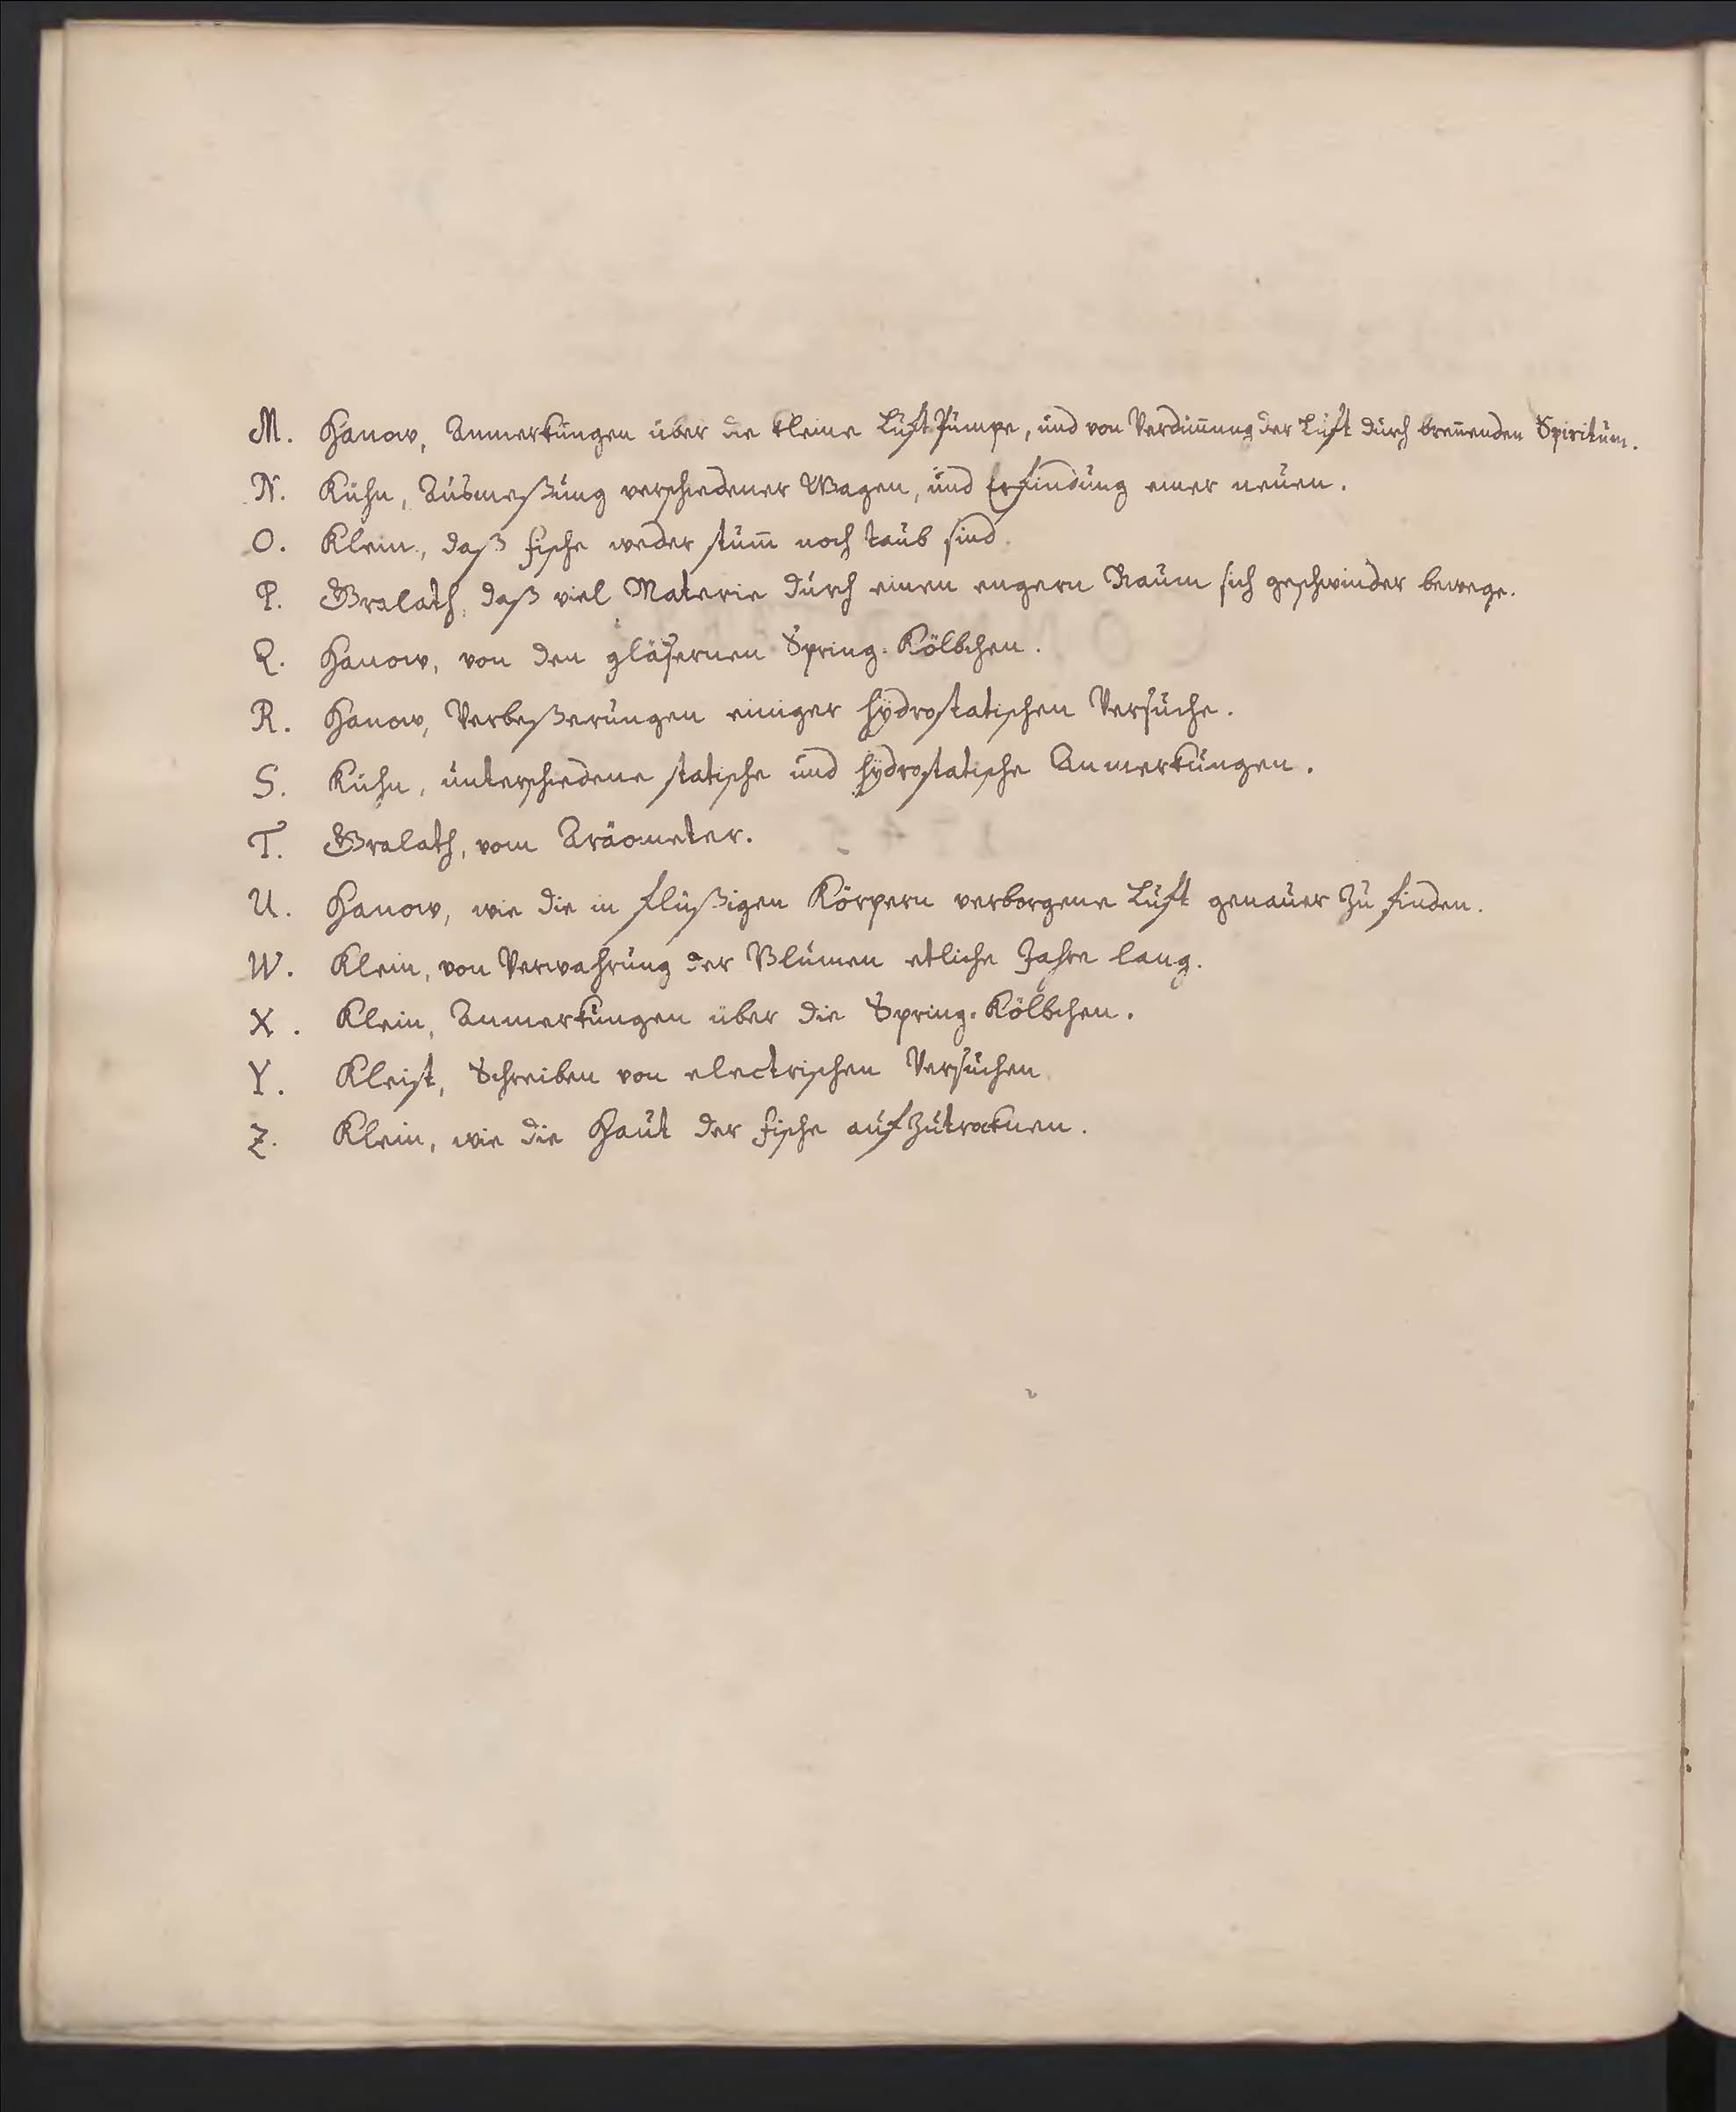 M. Hanow, Anmerkungen über die kleine Luft-Pumpe, und von Verdin̄ung der Luft durch breñenden Spiritum.
N. Kühn, Ausmeßung verschiedener Wagen, und Erfindung einer neuen.
O. Klein, daß fische weder stum̄ noch taub sind.
P. Gralath, daß viel Materie durch einen engern Raum sich geschwinder bewege.
Q. Hanow, von den gläsernen Spring-Kölbchen.
R. Hanow, Verbeßerungen einiger hÿdrostatischen Versuche.
S. Kühn, unterschiedene statische und hÿdrostatische Anmerkungen.
T. Gralath, vom Aräometer.
U. Hanow, wie die in flüßigen Körpern verborgene Luft genauer zu finden.
W. Klein, von Verwahrung der Blumen etliche Jahre lang.
X. Klein, Anmerkungen über die Spring-Kölbchen.
Y. Kleist, Schreiben von electrischen Versuchen
Z. Klein, wie die Haut der fische aufzutrocknen.